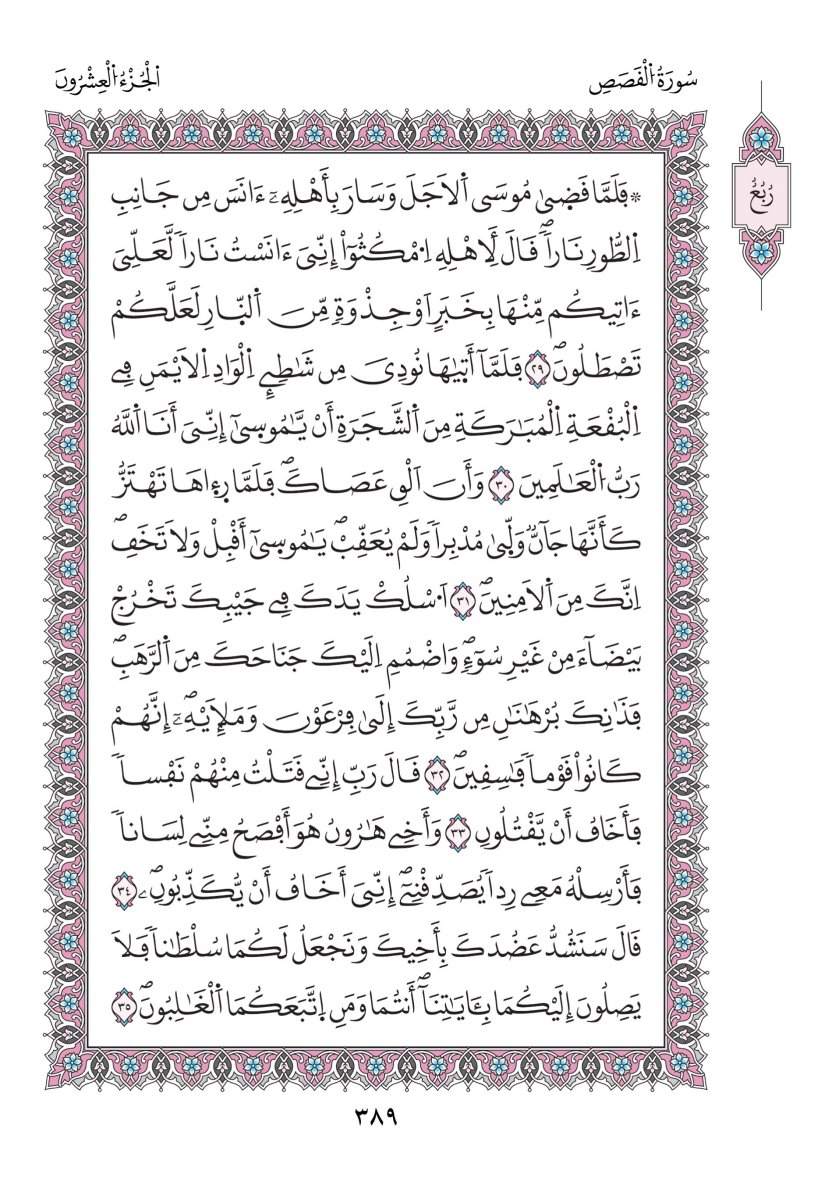 سُورَةُ الْقَصَصِ
الْجُزْءُ الْعِشْرُونَ
رُبُعُ
۞ فَلَمَّا قَض۪ىٰ مُوسَى اَ۬لَاجَلَ وَسَارَ بِأَهْلِهِۦٓ ءَانَسَ مِن جَانِبِ
اِ۬لطُّورِ نَاراٗۖ قَالَ لِأَهْلِهِ اِ۟مْكُثُوٓاْ إِنِّيَ ءَانَسْتُ نَاراٗ لَّعَلِّيَ
ءَاتِيكُم مِّنْهَا بِخَبَرٍ اَوْ جِذْوَةٖ مِّنَ اَ۬لنّ۪ارِ لَعَلَّكُمْ
تَصْطَلُونَۖ ٢٩ فَلَمَّآ أَت۪يٰهَا نُودِيَ مِن شَٰطِےِٕ اِ۬لْوَادِ اِ۬لَايْمَنِ فِے
اِ۬لْبُقْعَةِ اِ۬لْمُبَٰرَكَةِ مِنَ اَ۬لشَّجَرَةِ أَنْ يَّٰمُوس۪ىٰٓ إِنِّيَ أَنَا اَ۬للَّهُ
رَبُّ اُ۬لْعَٰلَمِينَ ٣٠ وَأَنَ اَلْقِ عَصَاكَۖ فَلَمَّا ر۪ء۪اهَا تَهْتَزُّ
كَأَنَّهَا جَآنّٞ وَلّ۪ىٰ مُدْبِراٗ وَلَمْ يُعَقِّبْۖ يَٰمُوس۪ىٰٓ أَقْبِلْ وَلَا تَخَفِۖ
اِنَّكَ مِنَ اَ۬لَامِنِينَۖ ٣١ اَ۟سْلُكْ يَدَكَ فِے جَيْبِكَ تَخْرُجْ
بَيْضَآءَ مِنْ غَيْرِ سُوٓءٖۖ وَاضْمُمِ اِلَيْكَ جَنَاحَكَ مِنَ اَ۬لرَّهَبِۖ
فَذَٰنِكَ بُرْهَٰنَٰنِ مِن رَّبِّكَ إِلَىٰ فِرْعَوْنَ وَمَلَإِيْهِۦٓۖ إِنَّهُمْ
كَانُواْ قَوْماٗ فَٰسِقِينَۖ ٣٢ قَالَ رَبِّ إِنِّے قَتَلْتُ مِنْهُمْ نَفْساٗ
فَأَخَافُ أَنْ يَّقْتُلُونِ ٣٣ وَأَخِے هَٰرُونُ هُوَ أَفْصَحُ مِنِّے لِسَاناٗ
فَأَرْسِلْهُ مَعِے رِداٗ يُصَدِّقْنِےٓۖ إِنِّيَ أَخَافُ أَنْ يُّكَذِّبُونِۦۖ ٣٤
قَالَ سَنَشُدُّ عَضُدَكَ بِأَخِيكَ وَنَجْعَلُ لَكُمَا سُلْطَٰناٗ فَلَا
يَصِلُونَ إِلَيْكُمَا بِـَٔايَٰتِنَآۖ أَنتُمَا وَمَنِ اِ۪تَّبَعَكُمَا اَ۬لْغَٰلِبُونَۖ ٣٥
٣٨٩